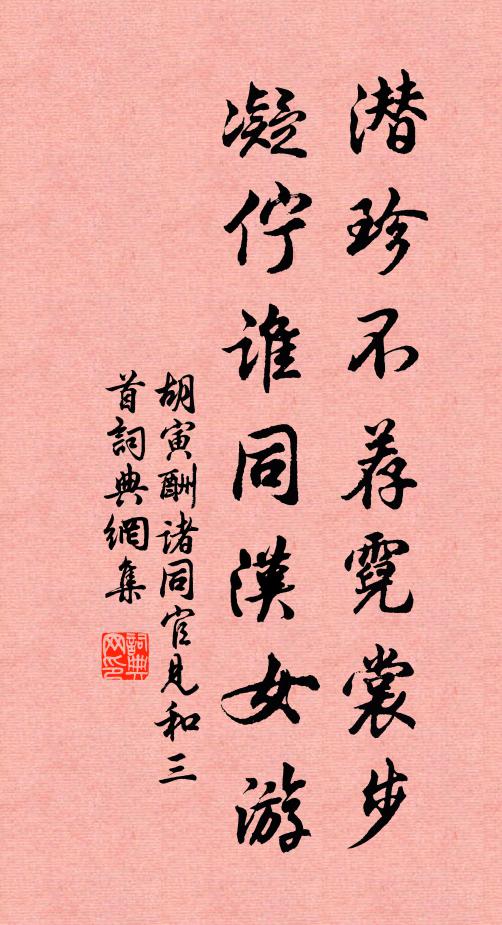 潜珍不荐霓裳步
凝伫谁同漢女游
胡寅酬诸同官見和三
首詞典網集
詞典网印